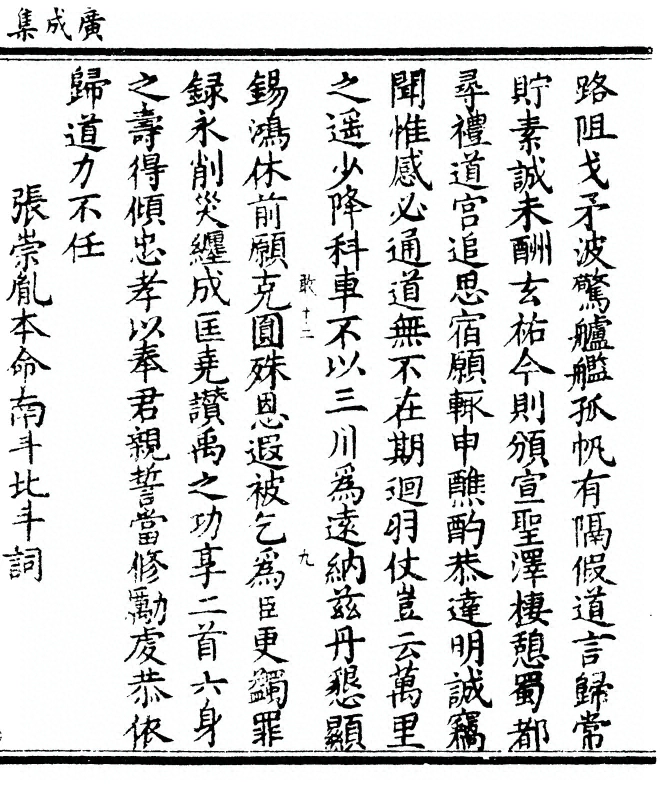 廣成集
路阻戈矛波驚艫艦孤帆有隔假道言歸常
貯素誠未酬玄祐今則頒宣聖澤棲憩蜀都
尋禮道宮追思宿願輙申醮酌恭達明誠竊
聞惟感必通道無不在期迴羽仗豈云萬里
之遥少降科車不以三川爲遠納兹丹懇顯
錫鴻休前願克圓殊恩遐被乞爲臣更蠲罪
敢十二
九
録永削災纏成匡堯讚禹之功享二首六身
之壽得傾忠孝以奉君親誓當修勵虔恭依
歸道力不任
張崇胤本命南斗北斗詞